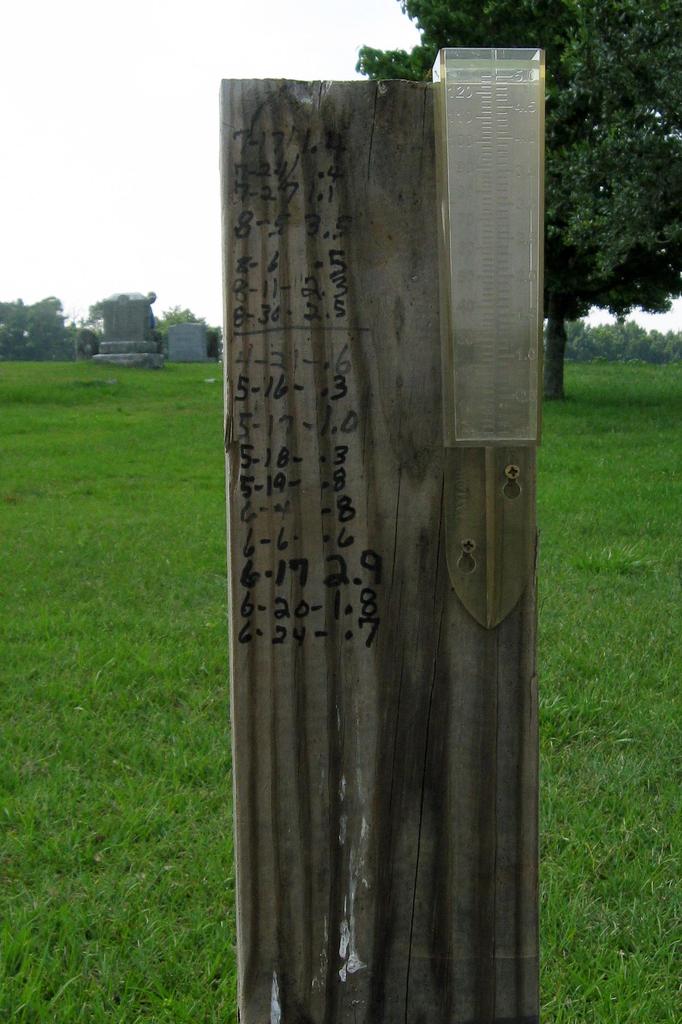 7-17 1.4
7-24 .4
7-27 1.1
8-5 3.5
8-6 .5
8-11-2.3
8-30-2.5
4-21-.6
5-16-.3
5-17-1.0
5-18-.3
5-19-.8
6-4 -8
6-6- .6
6-17 2.9
6-20-1.8
6-24-.7
5.0
120
4.5
110
100
1.0